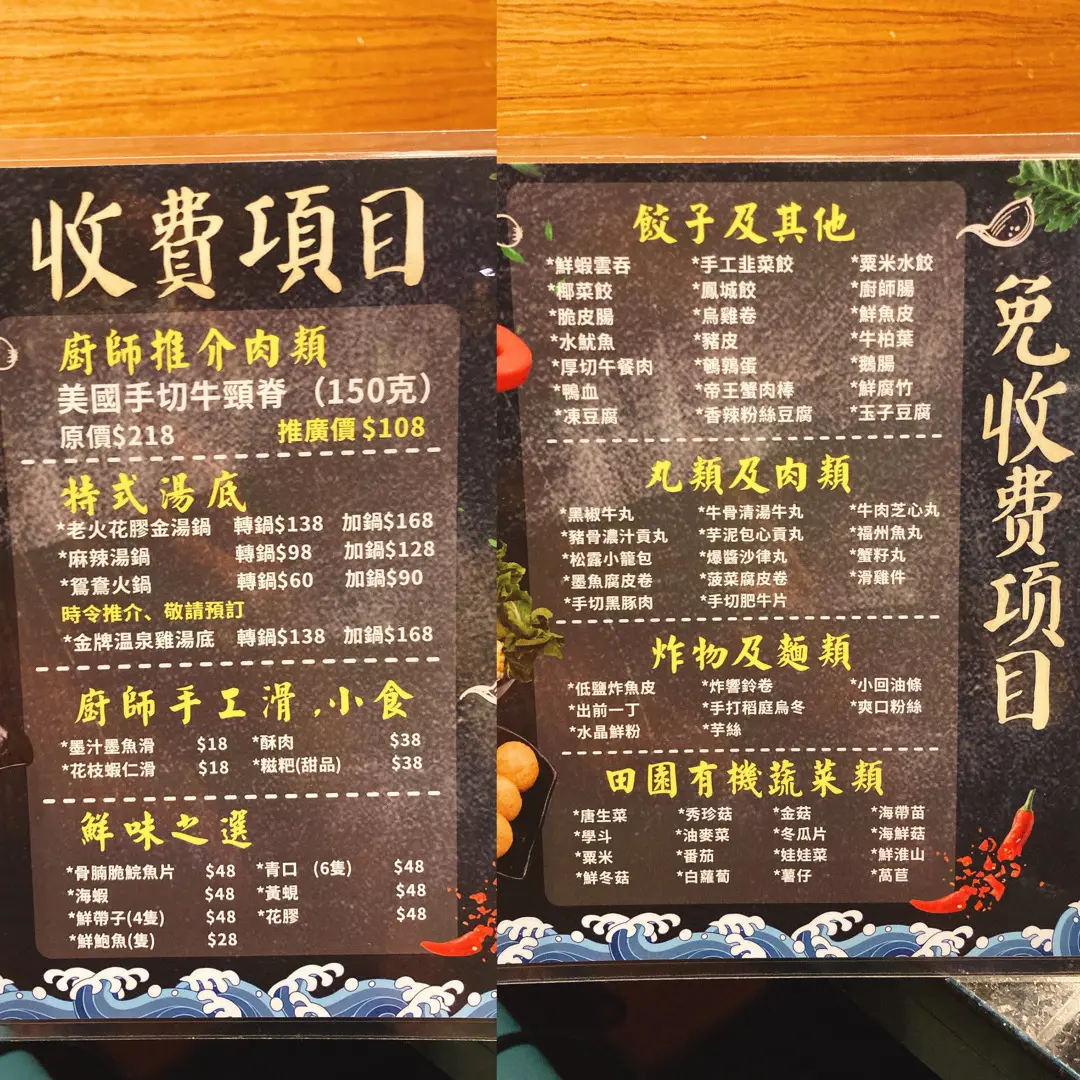 收費項目
廚師推介肉類
美國手切牛頸脊 (150克)
原價$218 推廣價$108
特式湯底
*老火花膠金湯鍋 轉鍋$138 加鍋$168
*麻辣湯鍋 轉鍋$98 加鍋$128
*鴛鴦火鍋 轉鍋$60 加鍋$90
時令推介、敬請預訂
*金牌温泉雞湯底 轉鍋$138 加鍋$168
廚師手工滑,小食
*墨汁墨魚滑 $18 *酥肉 $38
*花枝蝦仁滑 $18 *糍粑(甜品) $38
鮮味之選
*骨腩脆鯇魚片 $48 *青口 (6隻) $48
*海蝦 $48 *黃蜆 $48
*鮮帶子(4隻) $48 *花膠 $48
*鮮鮑魚(隻) $28
免收费项目
餃子及其他
*鮮蝦雲吞 *手工韭菜餃 *粟米水餃
*椰菜餃 *鳳城餃 *廚師腸
*脆皮腸 *烏雞卷 *鮮魚皮
*水魷魚 *豬皮 *牛柏葉
*厚切午餐肉 *鵪鶉蛋 *鵝腸
*鴨血 *帝王蟹肉棒 *鮮腐竹
*凍豆腐 *香辣粉絲豆腐 *玉子豆腐
丸類及肉類
*黑椒牛丸 *牛骨清湯牛丸 *牛肉芝心丸
*豬骨濃汁貢丸 *芋泥包心貢丸 *福州魚丸
*松露小籠包 *爆醬沙律丸 *蟹籽丸
*墨魚腐皮卷 *菠菜腐皮卷 *滑雞件
*手切黑豚肉 *手切肥牛片
炸物及麵類
*低鹽炸魚皮 *炸響鈴卷 *小回油條
*出前一丁 *手打稻庭烏冬 *爽口粉絲
*水晶鮮粉 *芋絲
田園有機蔬菜類
*唐生菜 *秀珍菇 *金菇 *海帶苗
*學斗 *油麥菜 *冬瓜片 *海鮮菇
*粟米 *番茄 *娃娃菜 *鮮淮山
*鮮冬菇 *白蘿蔔 *薯仔 *萵苣